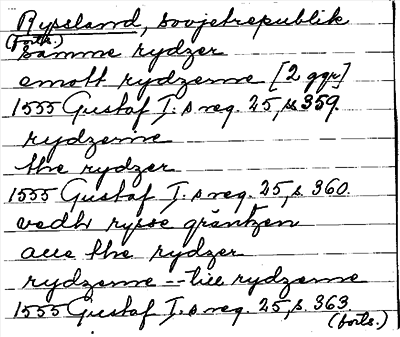 Ryssland, Sovjetrepublik
(forts.)
samme rydzer
emott rydzerne [2 ggr]
1555 Gustaf I:s reg. 25, s. 359.
rydzerne
the rydzer
1555 Gustaf I:s reg. 25, s. 360.
vedh rysse gräntzen
aue the rydzer
rydzerne -- till rydzerne
1555 Gustaf I:s reg. 25, s. 363.
(forts.)